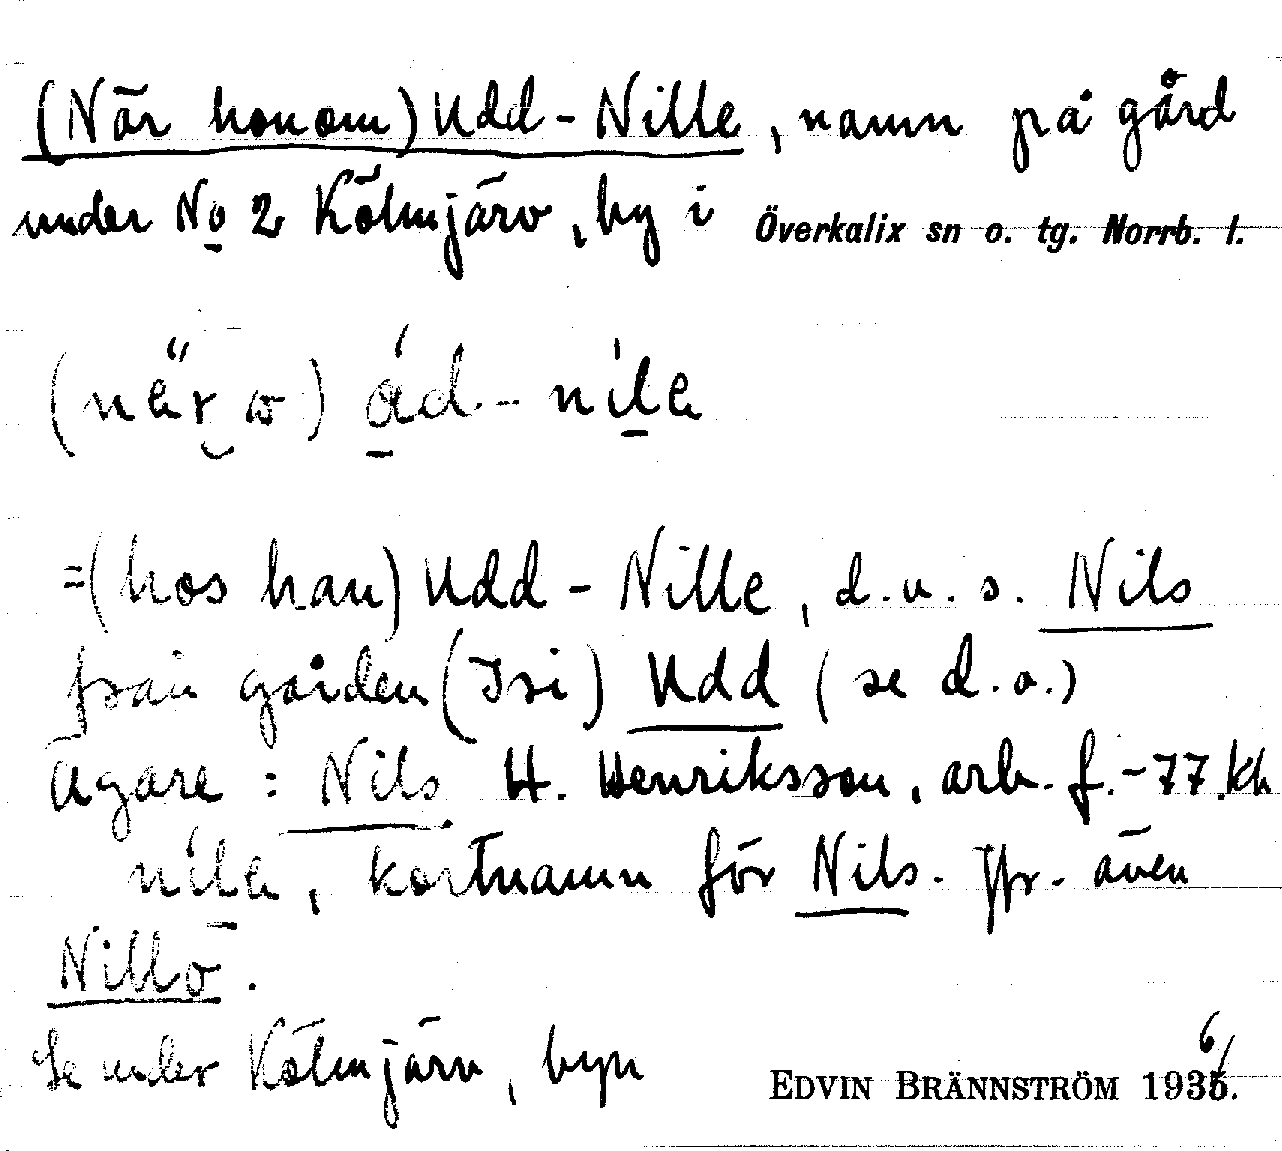 (När honom) Udd-Nille, namn på gård
under No 2 Kölmjärv, by i Överkalix sn o. tg. Norrb. l.
=(hos han) Udd-Nille, d.v.s. Nils
från gården (Isi) Udd (se d.o.)
Ägare: Nils H. Henriksson, arb. f. -77. Kh
nila, kortnamn för Nils. Jfr. även
Nillö.
Se under Kölmjärv, byn
EDVIN BRÄNNSTRÖM 1936.